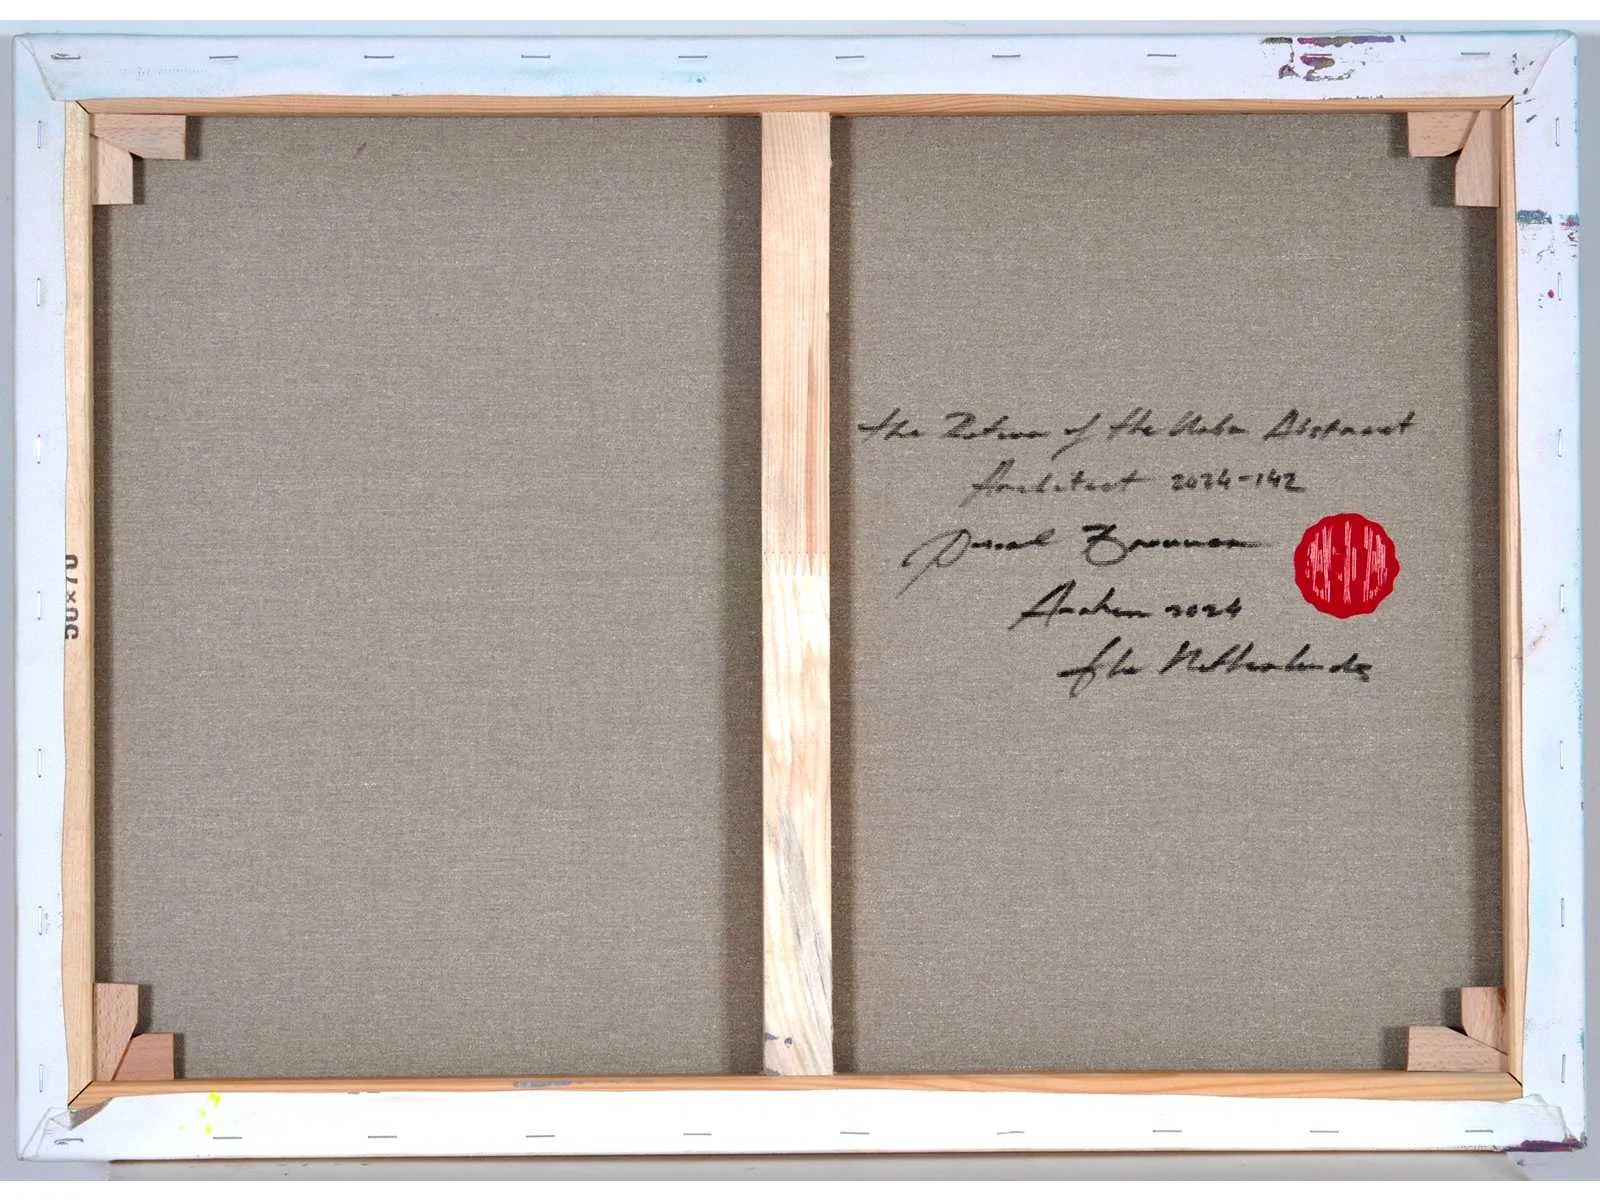 The Return of the Urban Abstract
Architect 2024-142
Pascal Brouwer
Arnhem 2024
The Netherlands
50×70